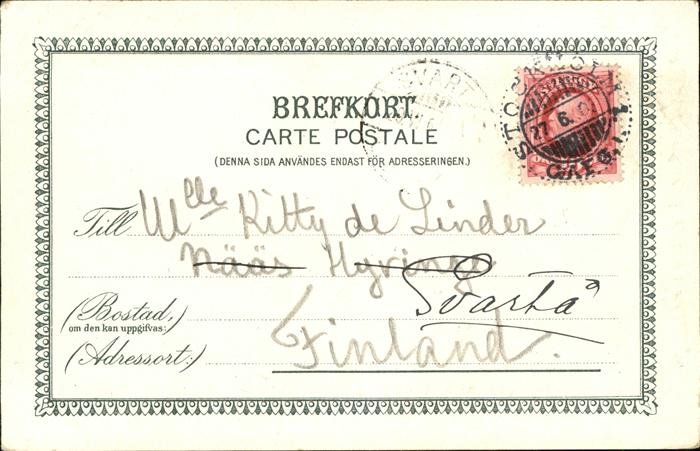 BREFKORT.
CARTE POSTALE
(DENNA SIDA ANVÄNDES ENDAST FÖR ADRESSERINGEN.)
SVART
STOCKHOLM
27. 6.
Till Mlle Kitty de Linder
Nääs Hyvinge
Svartå
(Bostad,
om den kan uppgifvas:)
Finland.
(Adressort:)